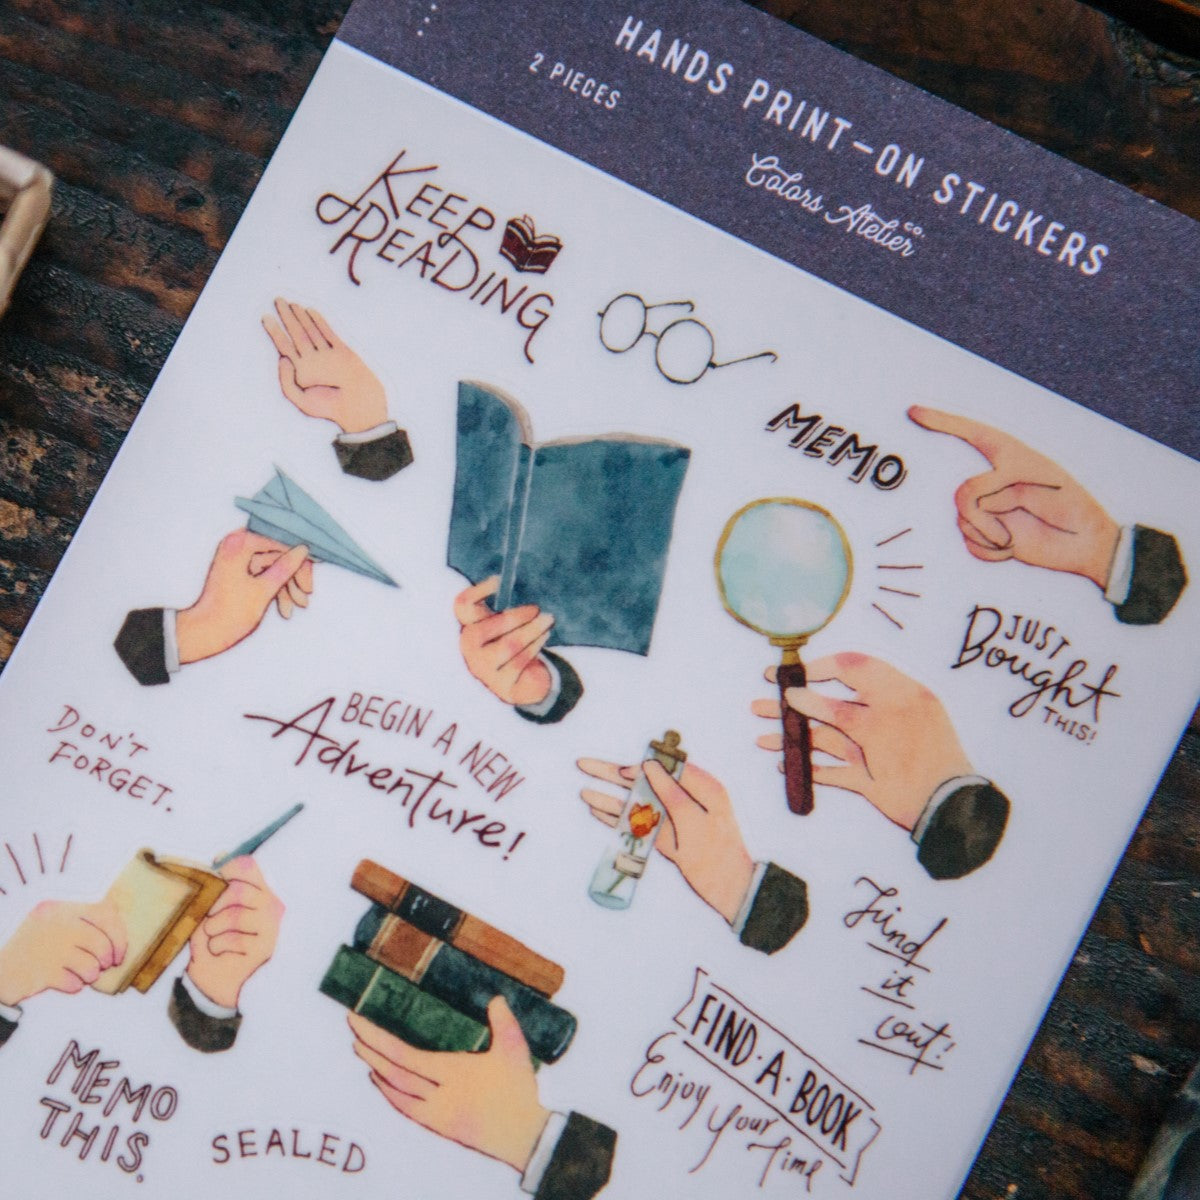 HANDS PRINT-ON STICKERS
2 PIECES
Colors Atelier co.
KEEP
READING
MEMO
JUST
Bought
THIS!
BEGIN A NEW
Adventure!
DON'T
FORGET.
Find
it
out!
FIND·A·BOOK
Enjoy your
Time
MEMO
THIS.
SEALED